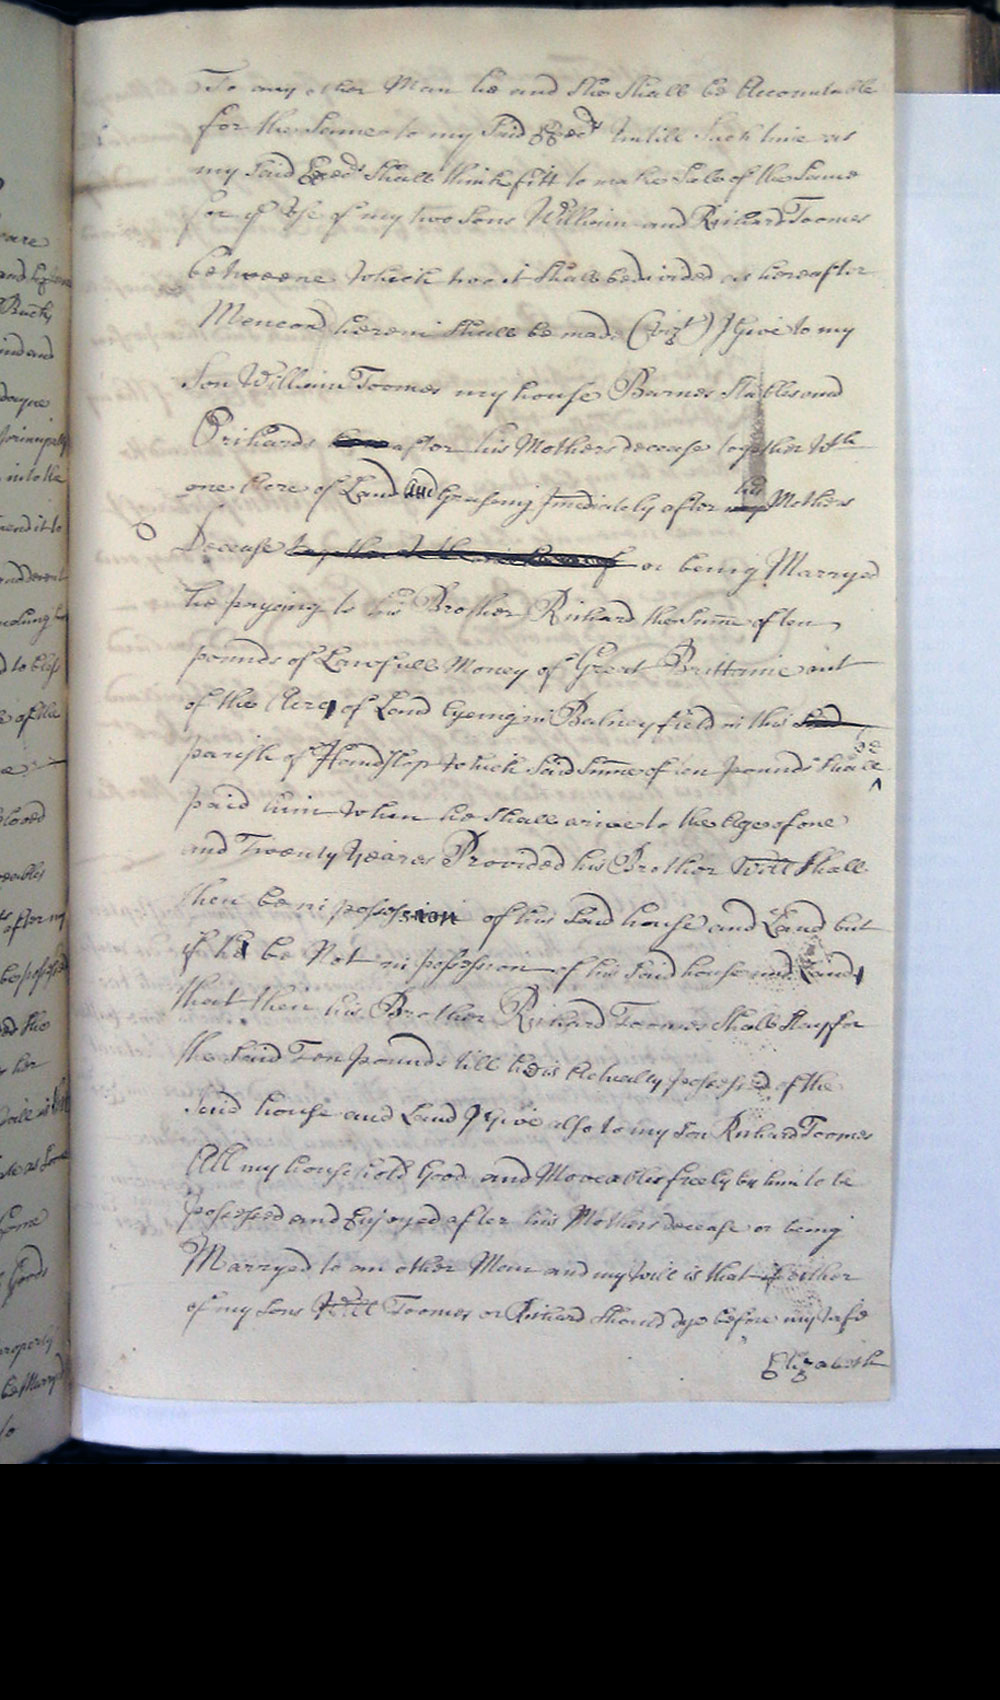 To any other Man he and She Shall be Accountable
for the Same to my Said Exec:rs Untill Such time as
my Said Exec:rs Shall think fitt to make Sale of the Same
for ye Use of my two Sons William and Richard Toomes
betweene which two it Shall be divided as hereafter
Mencond herein Shall be made (vizt) I Give to my
Son William Toomes my house Barnes Stables and
Orchards after his Mothers decease together wth
one Acre of Land and Grasing Imediately after his Mothers
Decease together or being Marryed
he paying to his Brother Richard the Sume of ten
pounds of Lawfull Money of Great Brittaine out
of the Acre of Land lyeing in Balney field in this Said
parish of Handslop which Said Sume of ten pounds Shall be
paid him when he Shall arive to the Age of one
and Twenty Yeares Provided his Brother Will Shall
then be in possession of his Said house and Land but
if he be Not in possession of his Said house and Land
that then his Brother Richard Toomes Shall Stay for
the Said Ten pounds till he is Actually possessed of the
Said house and Land I Give also to my Son Richard Toomes
All my household Good and Moveables freely by him to be
possessed and Enjoyed after his Mothers decease or being
Marryed to an other Man and my Will is that if either
of my Sons Will Toomes or Richard Should dye before my Wife
Elizabeth